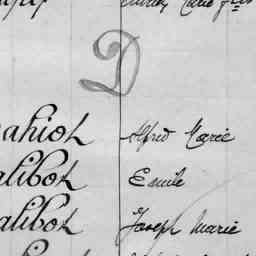 D
ahiot Alfred Marie
alibot Emile
alibot Joseph Marie